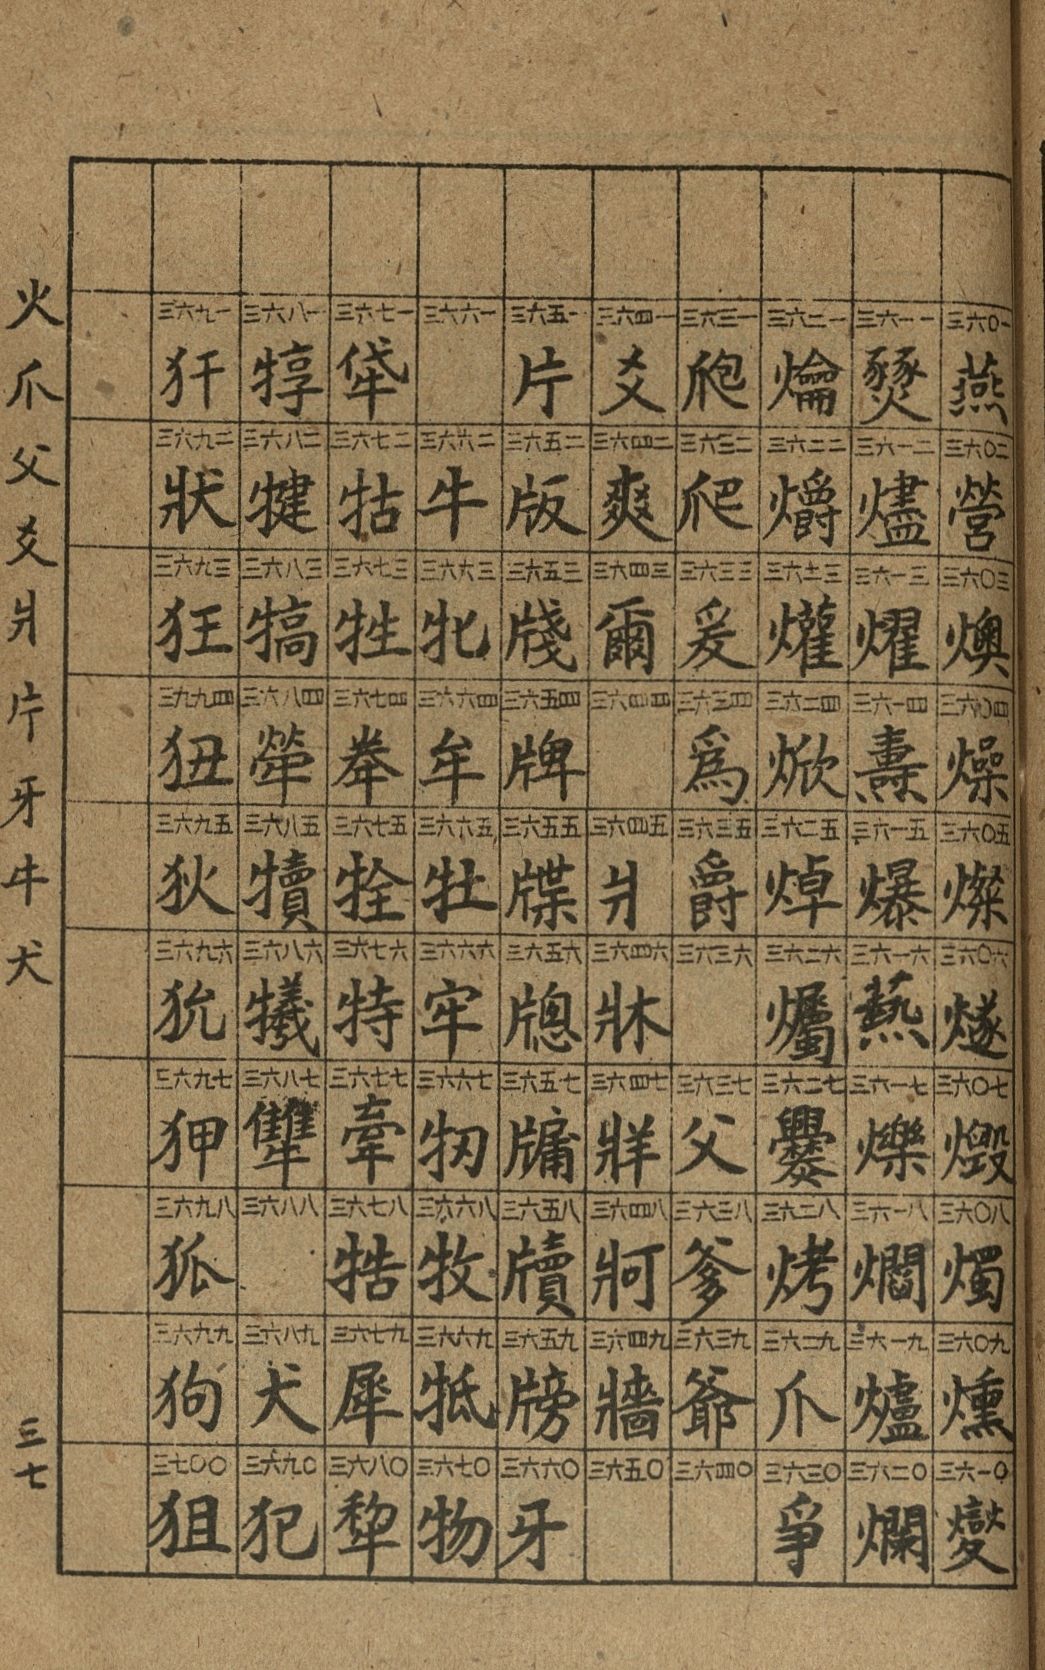 三六〇一 燕 三六〇二 營 三六〇三 燠 三六〇四 燥 三六〇五 燦 三六〇六 燧 三六〇七 燬 三六〇八 燭 三六〇九 燻 三六一〇 燮
三六一一 燹 三六一二 燼 三六一三 燿 三六一四 燾 三六一五 爆 三六一六 爇 三六一七 爍 三六一八 爓 三六一九 爐 三六二〇 爛
三六二一 爚 三六二二 爝 三六二三 爟 三六二四 焮 三六二五 焯 三六二六 爥 三六二七 爨 三六二八 烤 三六二九 爪 三六三〇 爭
三六三一 爮 三六三二 爬 三六三三 爰 三六三四 爲 三六三五 爵 三六三六 三六三七 父 三六三八 爹 三六三九 爺 三六四〇
三六四一 爻 三六四二 爽 三六四三 爾 三六四四 三六四五 爿 三六四六 牀 三六四七 牂 三六四八 牁 三六四九 牆 三六五〇
三六五一 片 三六五二 版 三六五三 牋 三六五四 牌 三六五五 牒 三六五六 牕 三六五七 牖 三六五八 牘 三六五九 牓 三六六〇 牙
三六六一 三六六二 牛 三六六三 牝 三六六四 牟 三六六五 牡 三六六六 牢 三六六七 牣 三六六八 牧 三六六九 牴 三六七〇 物
三六七一 牮 三六七二 牯 三六七三 牲 三六七四 牶 三六七五 牷 三六七六 特 三六七七 牽 三六七八 牿 三六七九 犀 三六八〇 犂
三六八一 犉 三六八二 犍 三六八三 犒 三六八四 犖 三六八五 犢 三六八六 犧 三六八七 犨 三六八八 三六八九 犬 三六九〇 犯
三六九一 犴 三六九二 狀 三六九三 狂 三九九四 狃 三六九五 狄 三六九六 狁 三六九七 狎 三六九八 狐 三六九九 狗 三七〇〇 狙
火爪父爻爿片牙牛犬
三七